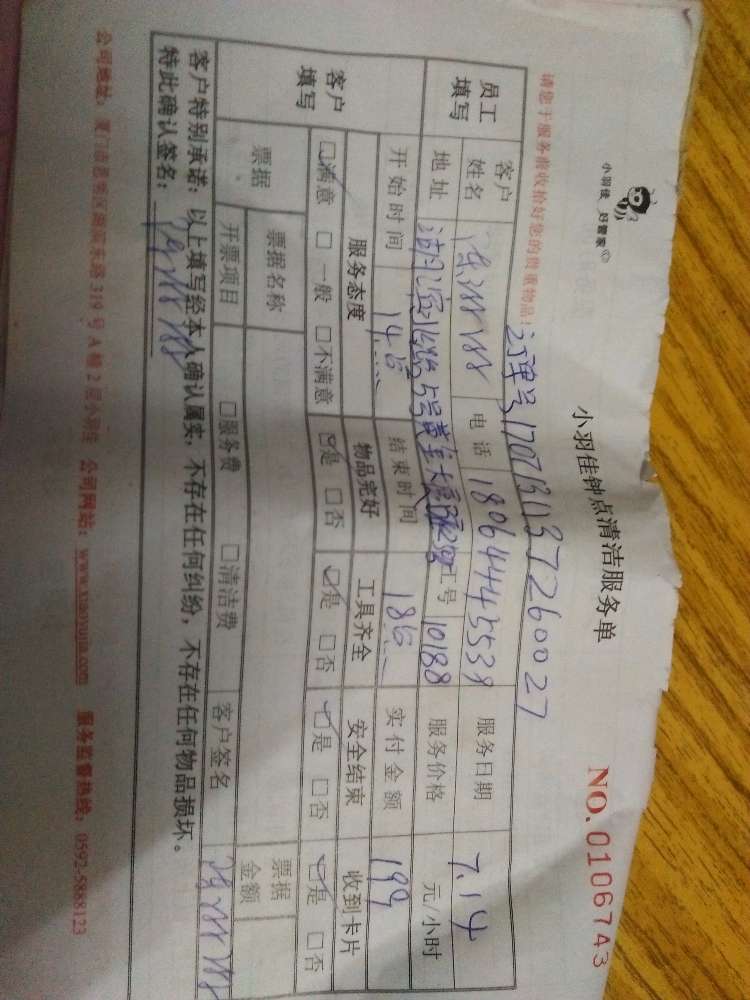 小羽佳 好管家
小羽佳钟点清洁服务单
NO.0106743
请您于服务前收拾好您的贵重物品!
订单号 1707131137260027
员工填写 客户姓名 电话 18064445539 服务日期 7.14
地址 湖滨北路 5号黄金大厦 工号 10188 服务价格 元/小时
客户填写 开始时间 14点 结束时间 18点 实付金额 199
服务态度 物品完好 工具齐全 安全结束 收到卡片
☑满意 □一般 □不满意 ☑是 □否 ☑是 □否 ☑是 □否 ☑是 □否
票据 票据名称 票据金额
开票项目 □服务费 □清洁费 客户签名
客户特别承诺:以上填写经本人确认属实,不存在任何纠纷,不存在任何物品损坏。
特此确认签名:
公司地址:厦门市思明区湖滨东路 319 号 A 幢 2 层小羽佳 公司网站:www.xiaoyujia.com 服务监督热线:0592-5888123